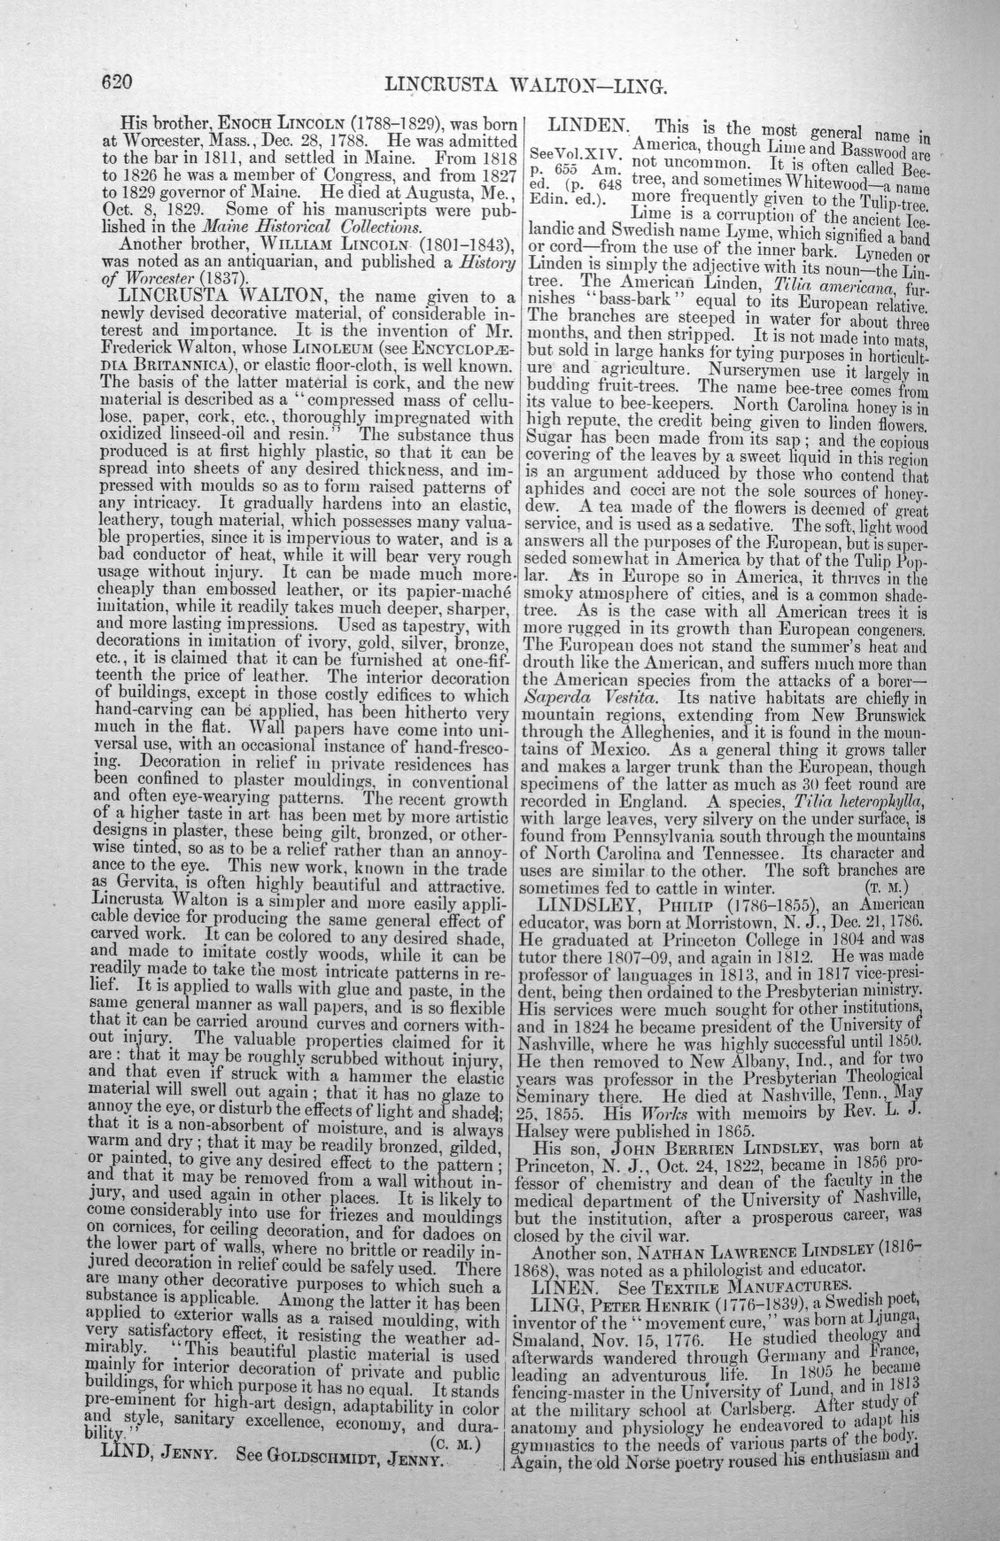 620
LINCRUSTA WALTON—LING.
His brother, ENOCH LINCOLN (1788–1829), was born
at Worcester, Mass., Dec. 28, 1788. He was admitted
to the bar in 1811, and settled in Maine. From 1818
to 1826 he was a member of Congress, and from 1827
to 1829 governor of Maine. He died at Augusta, Me.,
Oct. 8, 1829. Some of his manuscripts were pub-
lished in the Maine Historical Collections.
Another brother, WILLIAM LINCOLN (1801–1843),
was noted as an antiquarian, and published a History
of Worcester (1837).
LINCRUSTA WALTON, the name given to a
newly devised decorative material, of considerable in-
terest and importance. It is the invention of Mr.
Frederick Walton, whose LINOLEUM (see ENCYCLOPÆ-
DIA BRITANNICA), or elastic floor-cloth, is well known.
The basis of the latter material is cork, and the new
material is described as a "compressed mass of cellu-
lose, paper, cork, etc., thoroughly impregnated with
oxidized linseed-oil and resin." The substance thus
produced is at first highly plastic, so that it can be
spread into sheets of any desired thickness, and im-
pressed with moulds so as to form raised patterns of
any intricacy. It gradually hardens into an elastic,
leathery, tough material, which possesses many valua-
ble properties, since it is impervious to water, and is a
bad conductor of heat, while it will bear very rough
usage without injury. It can be made much more
cheaply than embossed leather, or its papier-maché
imitation, while it readily takes much deeper, sharper,
and more lasting impressions. Used as tapestry, with
decorations in imitation of ivory, gold, silver, bronze,
etc., it is claimed that it can be furnished at one-fif-
teenth the price of leather. The interior decoration
of buildings, except in those costly edifices to which
hand-carving can be applied, has been hitherto very
much in the flat. Wall papers have come into uni-
versal use, with an occasional instance of hand-fresco-
ing. Decoration in relief in private residences has
been confined to plaster mouldings, in conventional
and often eye-wearying patterns. The recent growth
of a higher taste in art has been met by more artistic
designs in plaster, these being gilt, bronzed, or other-
wise tinted, so as to be a relief rather than an annoy-
ance to the eye. This new work, known in the trade
as Gervita, is often highly beautiful and attractive.
Lincrusta Walton is a simpler and more easily appli-
cable device for producing the same general effect of
carved work. It can be colored to any desired shade,
and made to imitate costly woods, while it can be
readily made to take the most intricate patterns in re-
lief. It is applied to walls with glue and paste, in the
same general manner as wall papers, and is so flexible
that it can be carried around curves and corners with-
out injury. The valuable properties claimed for it
are: that it may be roughly scrubbed without injury,
and that even if struck with a hammer the elastic
material will swell out again; that it has no glaze to
annoy the eye, or disturb the effects of light and shade;
that it is a non-absorbent of moisture, and is always
warm and dry; that it may be readily bronzed, gilded,
or painted, to give any desired effect to the pattern;
and that it may be removed from a wall without in-
jury, and used again in other places. It is likely to
come considerably into use for friezes and mouldings
on cornices, for ceiling decoration, and for dadoes on
the lower part of walls, where no brittle or readily in-
jured decoration in relief could be safely used. There
are many other decorative purposes to which such a
substance is applicable. Among the latter it has been
applied to exterior walls as a raised moulding, with
very satisfactory effect, it resisting the weather ad-
mirably. "This beautiful plastic material is used
mainly for interior decoration of private and public
buildings, for which purpose it has no equal. It stands
pre-eminent for high-art design, adaptability in color
and style, sanitary excellence, economy, and dura-
bility." (C. M.)
LIND, JENNY. See GOLDSCHMIDT, JENNY.
LINDEN. This is the most general name in
See Vol. XIV. America, though Lime and Basswood are
p. 655 Am. not uncommon. It is often called Bee-
ed. (p. 648 tree, and sometimes Whitewood—a name
Edin. ed.). more frequently given to the Tulip-tree.
Lime is a corruption of the ancient Ice-
landic and Swedish name Lyme, which signified a band
or cord—from the use of the inner bark. Lyneden or
Linden is simply the adjective with its noun—the Lin-
tree. The American Linden, Tilia americana, fur-
nishes "bass-bark" equal to its European relative.
The branches are steeped in water for about three
months, and then stripped. It is not made into mats,
but sold in large hanks for tying purposes in horticult-
ure and agriculture. Nurserymen use it largely in
budding fruit-trees. The name bee-tree comes from
its value to bee-keepers. North Carolina honey is in
high repute, the credit being given to linden flowers.
Sugar has been made from its sap; and the copious
covering of the leaves by a sweet liquid in this region
is an argument adduced by those who contend that
aphides and cocci are not the sole sources of honey-
dew. A tea made of the flowers is deemed of great
service, and is used as a sedative. The soft, light wood
answers all the purposes of the European, but is super-
seded somewhat in America by that of the Tulip Pop-
lar. As in Europe so in America, it thrives in the
smoky atmosphere of cities, and is a common shade-
tree. As is the case with all American trees it is
more rugged in its growth than European congeners.
The European does not stand the summer's heat and
drouth like the American, and suffers much more than
the American species from the attacks of a borer—
Saperda Vestita. Its native habitats are chiefly in
mountain regions, extending from New Brunswick
through the Alleghenies, and it is found in the moun-
tains of Mexico. As a general thing it grows taller
and makes a larger trunk than the European, though
specimens of the latter as much as 30 feet round are
recorded in England. A species, Tilia heterophylla,
with large leaves, very silvery on the under surface, is
found from Pennsylvania south through the mountains
of North Carolina and Tennessee. Its character and
uses are similar to the other. The soft branches are
sometimes fed to cattle in winter. (T. M.)
LINDSLEY, PHILIP (1786–1855), an American
educator, was born at Morristown, N. J., Dec. 21, 1786.
He graduated at Princeton College in 1804 and was
tutor there 1807–09, and again in 1812. He was made
professor of languages in 1813, and in 1817 vice-presi-
dent, being then ordained to the Presbyterian ministry.
His services were much sought for other institutions,
and in 1824 he became president of the University of
Nashville, where he was highly successful until 1850.
He then removed to New Albany, Ind., and for two
years was professor in the Presbyterian Theological
Seminary there. He died at Nashville, Tenn., May
25, 1855. His Works with memoirs by Rev. L. J.
Halsey were published in 1865.
His son, JOHN BERRIEN LINDSLEY, was born at
Princeton, N. J., Oct. 24, 1822, became in 1856 pro-
fessor of chemistry and dean of the faculty in the
medical department of the University of Nashville,
but the institution, after a prosperous career, was
closed by the civil war.
Another son, NATHAN LAWRENCE LINDSLEY (1816–
1868), was noted as a philologist and educator.
LINEN. See TEXTILE MANUFACTURES.
LING, PETER HENRIK (1776–1839), a Swedish poet,
inventor of the "movement cure," was born at Ljunga,
Smaland, Nov. 15, 1776. He studied theology and
afterwards wandered through Germany and France,
leading an adventurous life. In 1805 he became
fencing-master in the University of Lund, and in 1813
at the military school at Carlsberg. After study of
anatomy and physiology he endeavored to adapt his
gymnastics to the needs of various parts of the body.
Again, the old Norse poetry roused his enthusiasm and